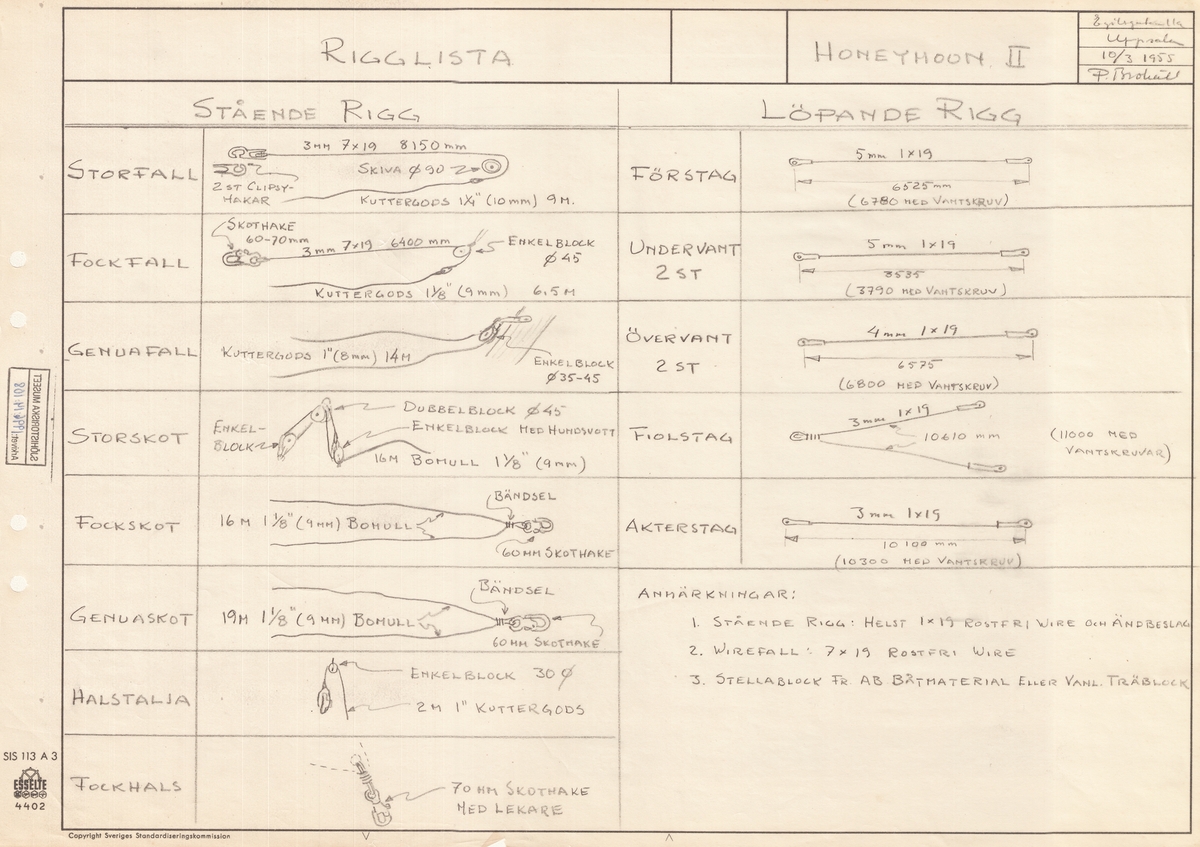 RIGGLISTA
HONEYMOON II
Uppsala
10/3 1955
STÅENDE RIGG
STORFALL
3MM 7×19 8150 MM
SKIVA Ø90
2 ST CLIPSY-
HAKAR
KUTTERGODS 1¼" (10 MM) 9 M.
FOCKFALL
SKOTHAKE
60-70 MM
3MM 7×19 6400 MM
ENKELBLOCK
Ø45
KUTTERGODS 1⅛" (9 MM) 6,5 M
GENUAFALL
KUTTERGODS 1" (8 MM) 14M
ENKELBLOCK
Ø35-45
STORSKOT
ENKEL-
BLOCK
DUBBELBLOCK Ø45
ENKELBLOCK MED HUNDSVOTT
16M BOMULL 1⅛" (9 MM)
FOCKSKOT
16 M 1⅛" (9 MM) BOMULL
BÄNDSEL
60 MM SKOTHAKE
GENUASKOT
19M 1⅛" (9 MM) BOMULL
BÄNDSEL
60 MM SKOTHAKE
HALSTALJA
ENKELBLOCK 30 Ø
2 M 1" KUTTERGODS
FOCKHALS
70 MM SKOTHAKE
MED LEKARE
LÖPANDE RIGG
FÖRSTAG
5 mm 1×19
6525 mm
(6780 MED VANTSKRUV)
UNDERVANT
2 ST
5 mm 1×19
3535
(3790 MED VANTSKRUV)
ÖVERVANT
2 ST
4 mm 1×19
6575
(6800 MED VANTSKRUV)
FIOLSTAG
3 mm 1×19
10610 mm
(11000 MED
VANTSKRUVAR)
AKTERSTAG
3 mm 1×19
10 100 mm
(10300 MED VANTSKRUV)
ANMÄRKNINGAR:
1. STÅENDE RIGG: HELST 1×19 ROSTFRI WIRE OCH ÄNDBESLAG
2. WIREFALL: 7×19 ROSTFRI WIRE
3. STELLABLOCK FR. AB BÅTMATERIAL ELLER VANL. TRÄBLOCK
SIS 113 A 3
ESSELTE
4402
Copyright Sveriges Standardiseringskommission
STATENS SJÖHISTORISKA MUSEET